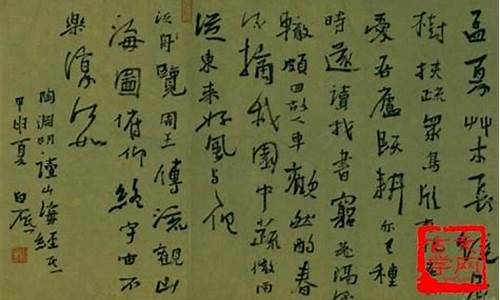 孟夏艸木長
樹扶疏眾鳥欣有
愛吾廬既耕亦已種
時還讀我書窮巷隔
轍頗回故人車歡然酌春
酒摘我園中蔬微雨
從東來好風與之俱
泛覽周王傳流觀山
海圖俯仰終宇宙不
樂復何如
陶淵明讀山海經其一
甲申夏白
古文学网